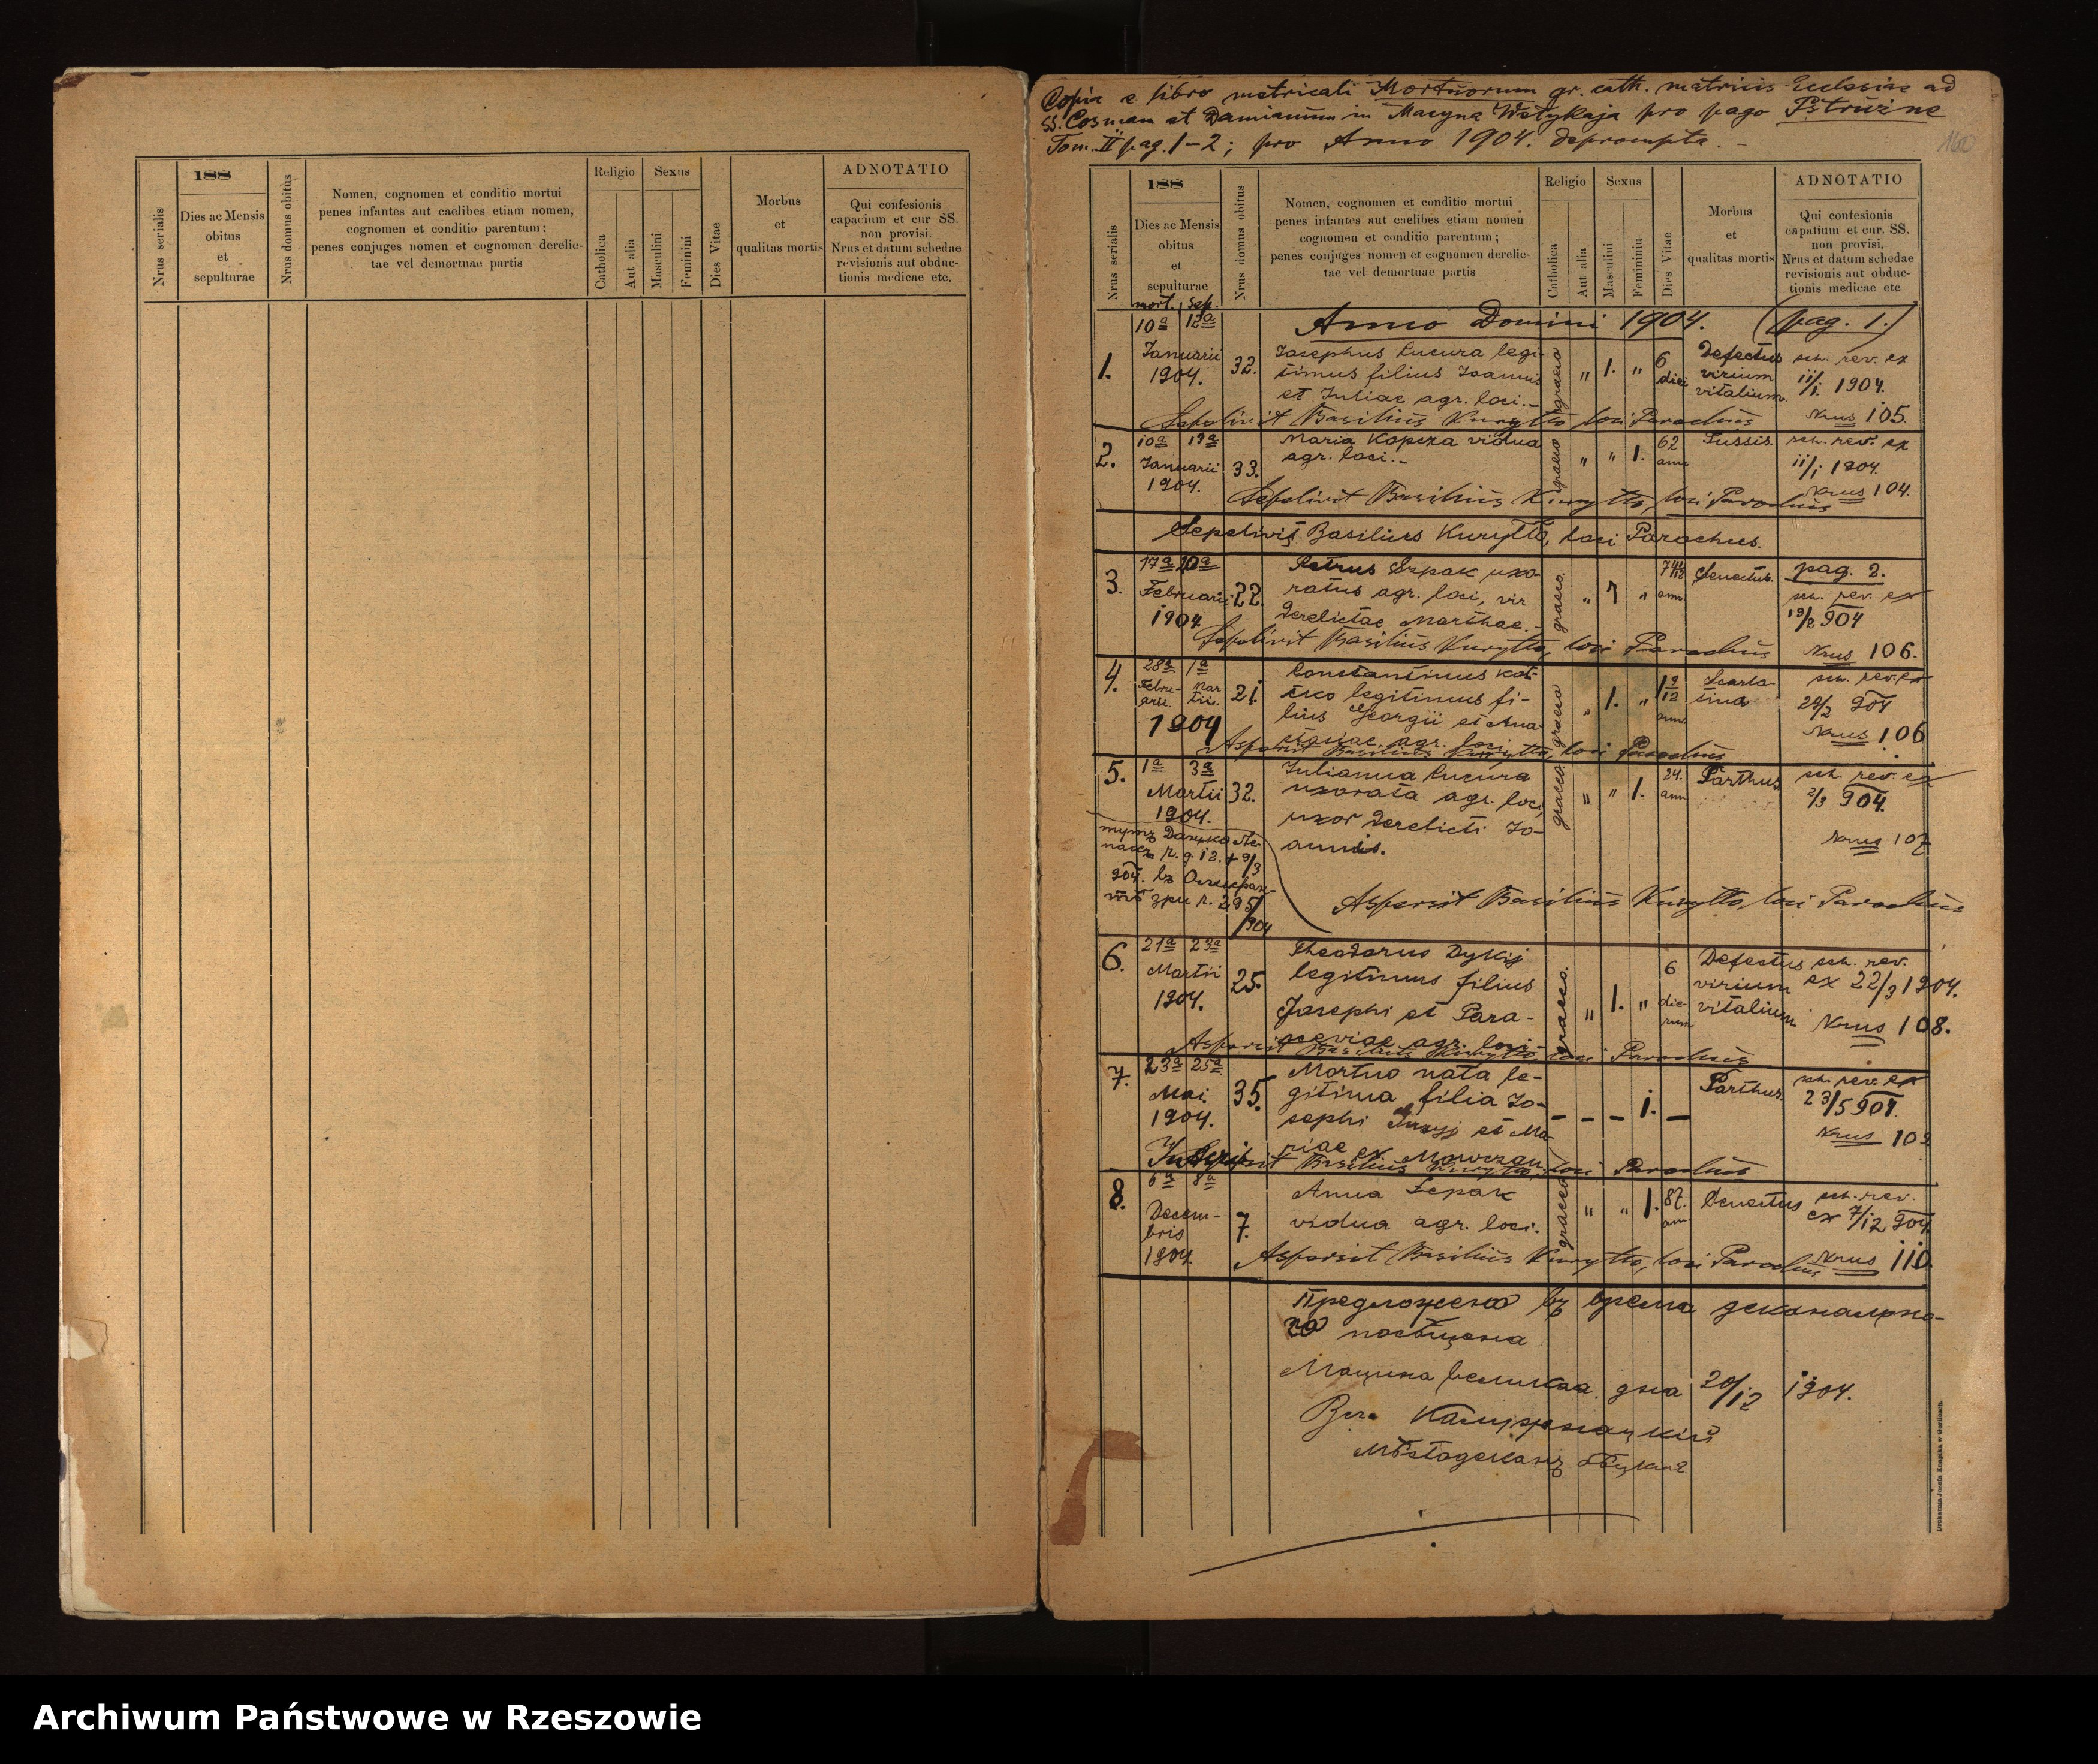 188
Nrus serialis
Dies ac Mensis
obitus
et
sepulturae
Nrus domus obitus
Nomen, cognomen et conditio mortui
penes infantes aut caelibes etiam nomen,
cognomen et conditio parentum:
penes conjuges nomen et cognomen derelic-
tae vel demortuae partis
Religio
Catholica
Aut alia
Sexus
Masculini
Feminini
Dies Vitae
Morbus
et
qualitas mortis
ADNOTATIO
Qui confesionis
capacium et cur SS.
non provisi.
Nrus et datum schedae
revisionis aut obduc-
tionis medicae etc.
Copia e libro metricali Mortuorum gr. cath. matricis Ecclesiae ad
SS. Cosmam et Damianum in pro pago
Tom. II pag. 1-2; pro Anno 1904. deprompta.
160
188
Nrus serialis
Dies ac Mensis
obitus
et
sepulturae
mort. sep.
Nrus domus obitus
Nomen, cognomen et conditio mortui
penes infantes aut caelibes etiam nomen
cognomen et conditio parentum;
penes conjuges nomen et cognomen derelic-
tae vel demortuae partis
Religio
Catholica
Aut alia
Sexus
Masculini
Femininiu
Dies Vitae
Morbus
et
qualitas mortis
ADNOTATIO
Qui confesionis
capatium et cur. SS.
non provisi,
Nrus et datum schedae
revisionis aut obduc-
tionis medicae etc
Anno Domini 1904. (pag. 1.)
1. 10a 12a
Januarii
1904.
32.
Josephus Cucura legi-
timus filius Joannis
et Juliae agr. loci.-
graeco " 1. " 6
Defectus
virium
vitalium
sch. rev. ex
11/1 1904.
Nrus 105.
Sepelivit Basilius Kuryłło, loci Parochus
2. 10a
Januarii
1904.
33.
Maria Kopcza vidua
agr. loci.-
graeco " " 1. 62
Tussis.
sch. rev. ex
11/1 1904.
Nrus 104.
Sepelivit Basilius Kuryłło, loci Parochus
Sepelivit Basilius Kuryłło, loci Parochus.
3. 17a
Februarii
1904.
22.
Petrus uxo-
ratus agr. loci, vir
derelictae Marthae.-
graeco. " 1 "
Senectus.
pag. 2.
sch. rev. ex
19/2 904
Nrus 106.
Sepelivit Basilius Kuryłło, loci Parochus
4. 28a 1a
Febru- Mar
arii. tii.
1904
21.
Constantinus
legitimus fi-
lius Georgii et Ana
stasiae agr. loci
graeco " 1. " 1 9/12
Scarla-
tina
sch. rev. ex
904
Nrus 106
Aspersit Basilius Kuryłło, loci Parochus
5. 1a 3a
Martii
1904.
32.
Julianna Cucura
uxorata agr. loci,
uxor derelicti Jo-
annis.
graeco. " " 1. 24.
ann
Parthus
sch. rev. ex
2/3 904.
Nrus 107
Aspersit Basilius Kuryłło, loci Parochus
6. 21a 23a
Martii
1904.
25.
Theodorus Dykij
legitimus filius
Josephi et Para-
sceviae agr. loci-
graeco. " 1. " 6
die-
rum
Defectus
virium
vitalium
sch. rev.
ex 22/3 1904.
Nrus 108.
Aspersit Basilius Kuryłło, loci Parochus
7. 23a 25a
Mai.
1904.
35.
Mortuo nata le-
gitima filia Jo-
sephi et Ma-
riae ex
- - - 1. -
Parthus.
sch. rev. ex
23/5 904.
Nrus 109
Basilius Kuryłło, loci Parochus
8. 6a 8a
Decem-
bris
1904.
7.
Anna
vidua agr. loci.
graeco " " 1. 87.
Senectus
sch. rev.
ex 7/12 904.
Nrus 110.
Aspersit Basilius Kuryłło, loci Parochus
Предложено въ время деканально-
го
Мацина великая, дня 20/12 1904.
Drukarnia Józefa Knapika w Gorlicach.
Archiwum Państwowe w Rzeszowie